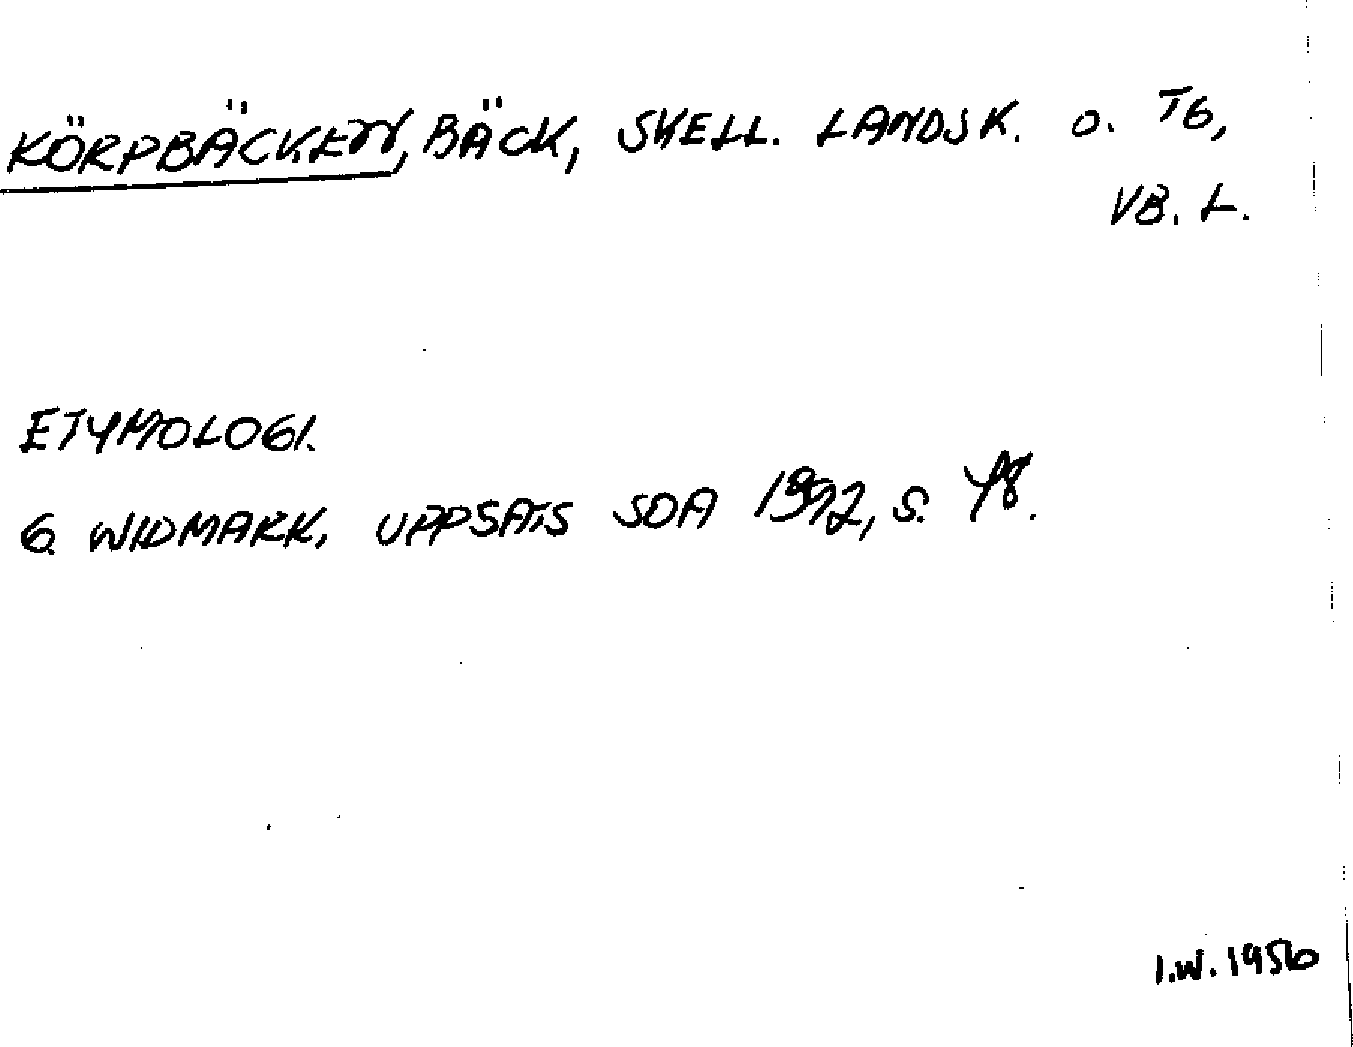 KÖRPBÄCKEN, BÄCK, SKELL. LANDSK. O. TG,
VB. L.
ETYMOLOGI.
G. WIDMARK, UPPSATS SOA s.
I.W. 1956